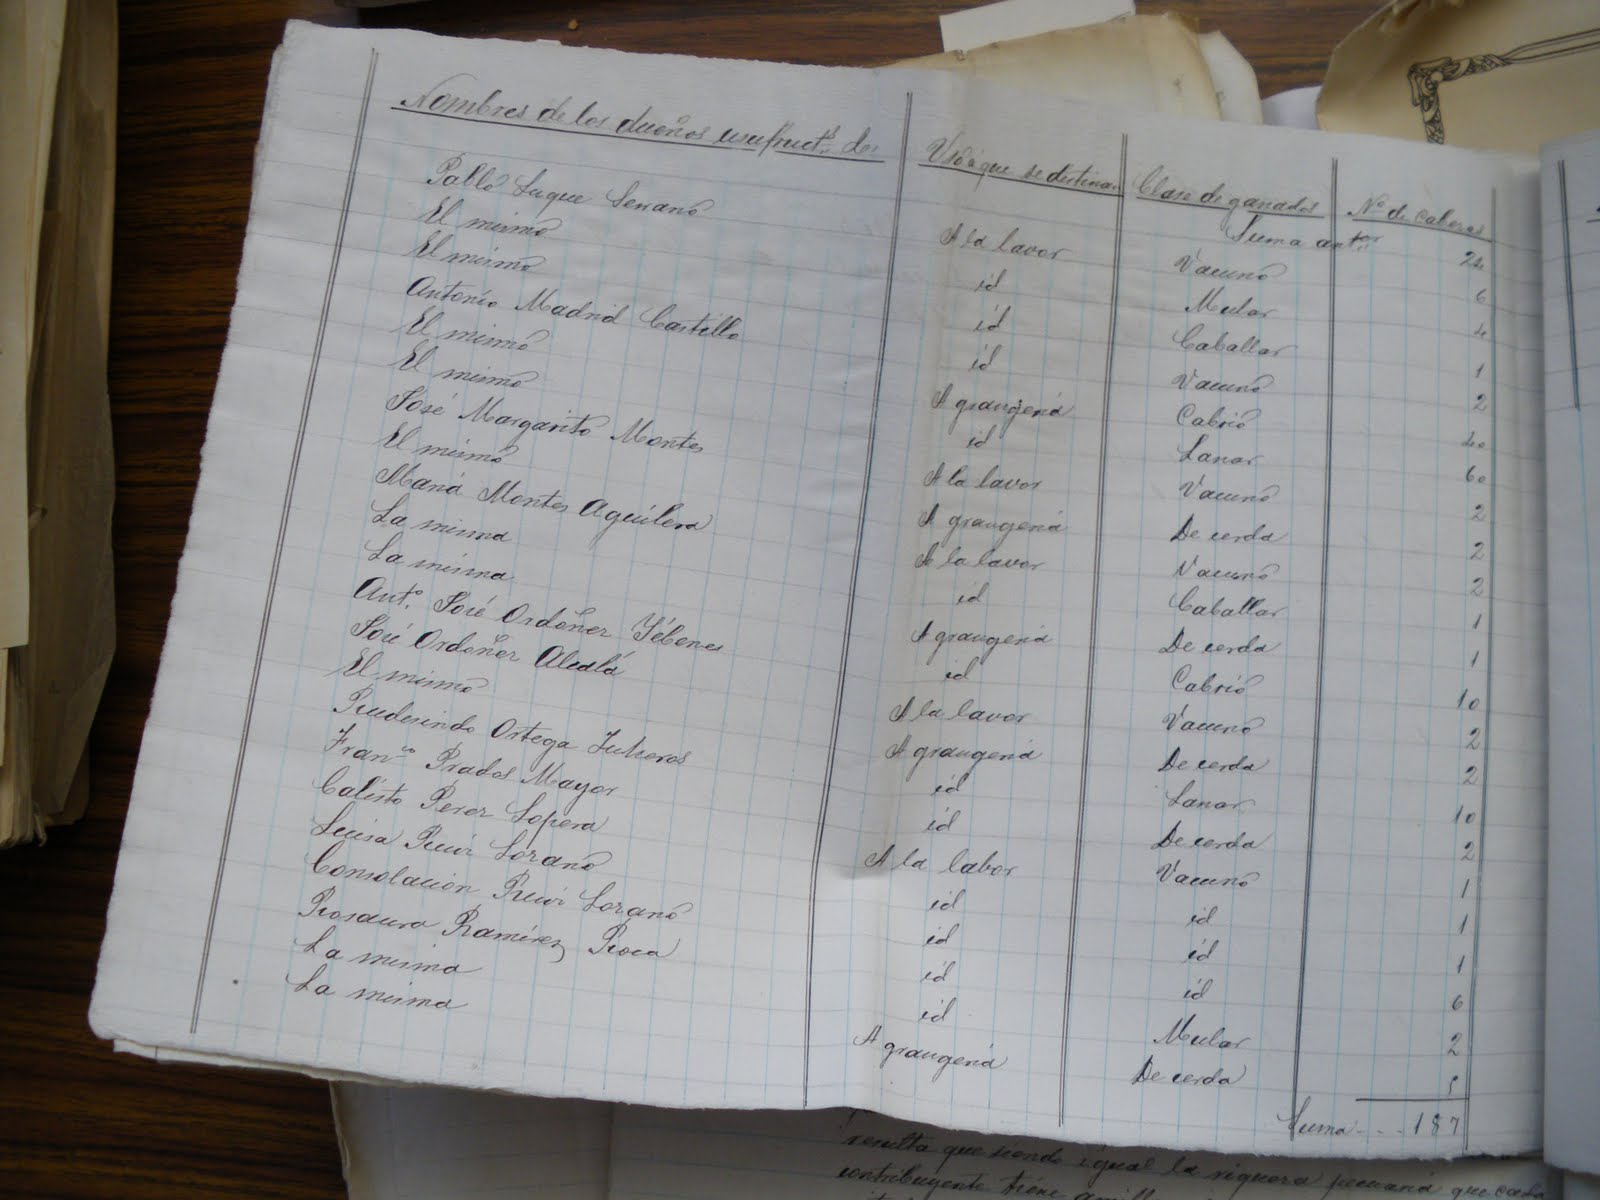 Nombres de los dueños usufruct.s de Uso á que se destinan Clase de ganados N.º de cabezas
Suma ant.or 24
Pablo Luque Serrano A la lavor Vacuno 6
El mismo id Mular 4
El mismo id Caballar 1
Antonio Madrid Castillo id Vacuno 2
El mismo A grangeria Cabrio 40
El mismo id Lanar 60
José Margarito Montes A la lavor Vacuno 2
El mismo A grangeria De cerda 2
Maria Montes Aguilera A la lavor Vacuno 2
La misma id Caballar 1
La misma A grangeria De cerda 1
Ant.º José Ordoñez Yébenes id Cabrio 10
José Ordoñez Alcalá A la lavor Vacuno 2
El mismo A grangeria De cerda 2
Rudesindo Ortega id Lanar 10
Fran.co Prados Mayor id De cerda 2
Calisto Perez Lopera A la labor Vacuno 1
Luisa Ruiz Lozano id id 1
Consolacion Ruiz Lozano id id 1
Rosaura Ramirez Roca id id 6
La misma id Mular 2
La misma A grangeria De cerda 5
Suma - - . . 187
resulta que siendo igual la riqueza pecuaria que cada
contribuyente tiene